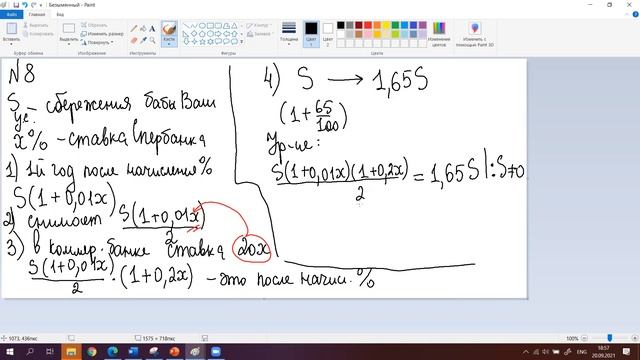 Безымянный - Paint
Файл Главная Вид
Вставить
Буфер обмена
Выделить
Изображение
Инструменты
Кисти
Фигуры
Контур
Заливка
Толщина
Цвет 1
Цвет 2
Цвета
Изменение цветов
Изменить с помощью Paint 3D
N8
S у.е. – сбережения бабы Вали
x% – ставка Сбербанка
1) 1й год после начисления %
S(1+0,01x)
2) снимает S(1+0,01x)/2
3) в коммер. банке ставка 20x
S(1+0,01x)/2 · (1+0,2x) – это после начисл. %
4) S → 1,65S
(1+65/100)
Ур-ие:
S(1+0,01x)(1+0,2x)/2 = 1,65S |:S≠0
1073, 436пкс
1575 × 718пкс
100%
18:57
20.09.2021